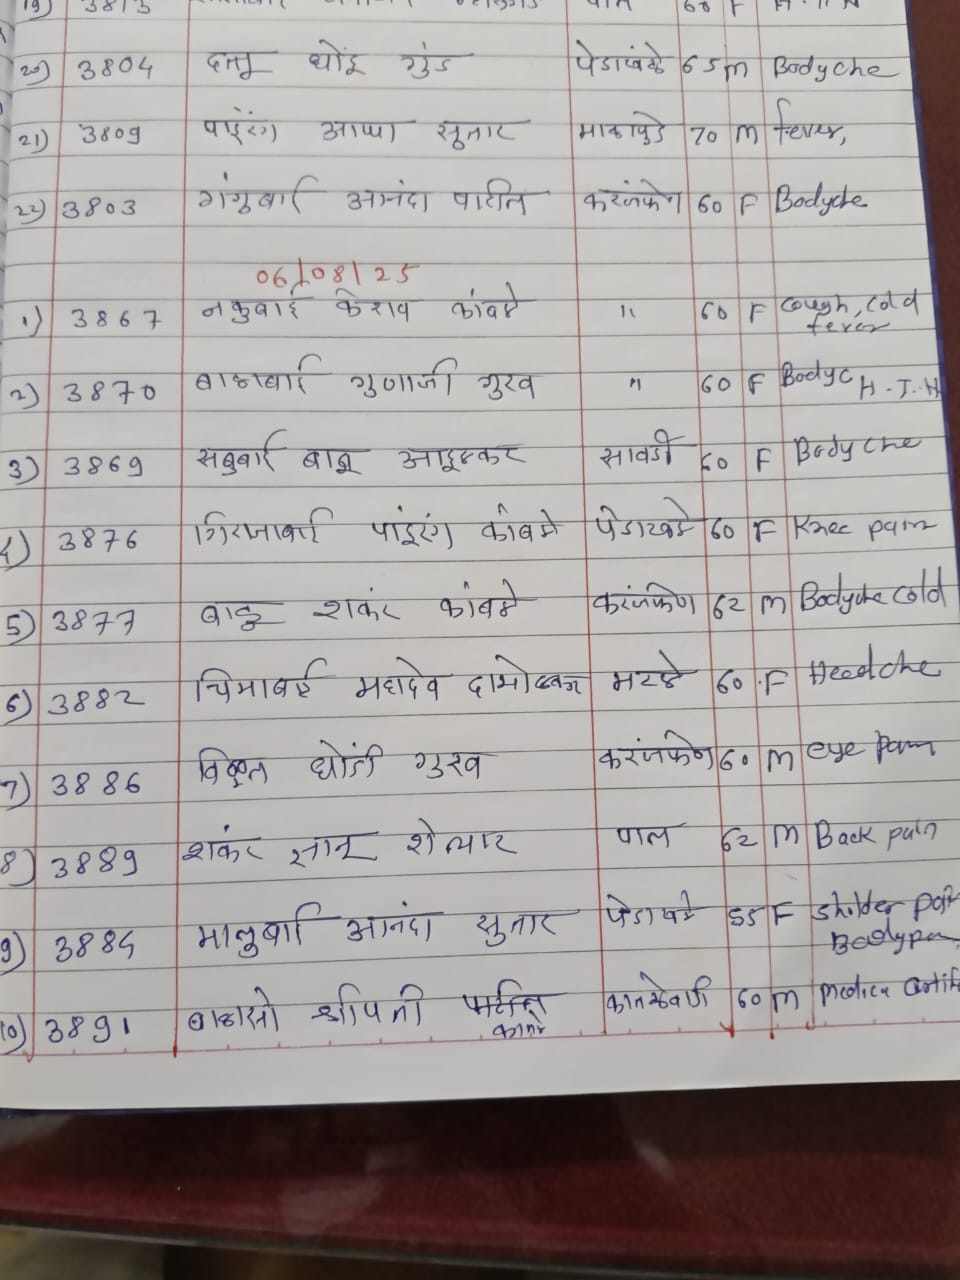 19) 3813 60 F
20) 3804 दत्तू धोंडू गुंड पेडाखळे 65 M Bodyche
21) 3809 पांडुरंग आप्पा सुतार 70 M fever,
22) 3803 गंगुबाई आनंदा पाटील करंजफेण 60 F Bodyche
06/08/25
1) 3867 नकुबाई केशव कांबळे " 60 F Cough, cold
fever
2) 3870 बाळाबाई गुणाजी गुरव " 60 F Bodyc H.T.N
3) 3869 बाबू सावर्डी 60 F Bodyche
4) 3876 गिरजाबाई पांडुरंग कांबळे पेडाखळे 60 F Knee pain
5) 3877 बाळू शकंर कांबळे करंजफेण 62 M Bodyche cold
6) 3882 चिमाबाई महादेव 60 F Headche
7) 3886 धोंडी गुरव करंजफेण 60 M eye pain
8) 3889 शकंर ज्ञानू शेलार पाल 62 M Back pain
9) 3884 मालुबाई आनंदा सुतार पेडाखळे 55 F Sholder pain
Bodypain
10) 3891 बाळासो श्रीपती 60 M Medica